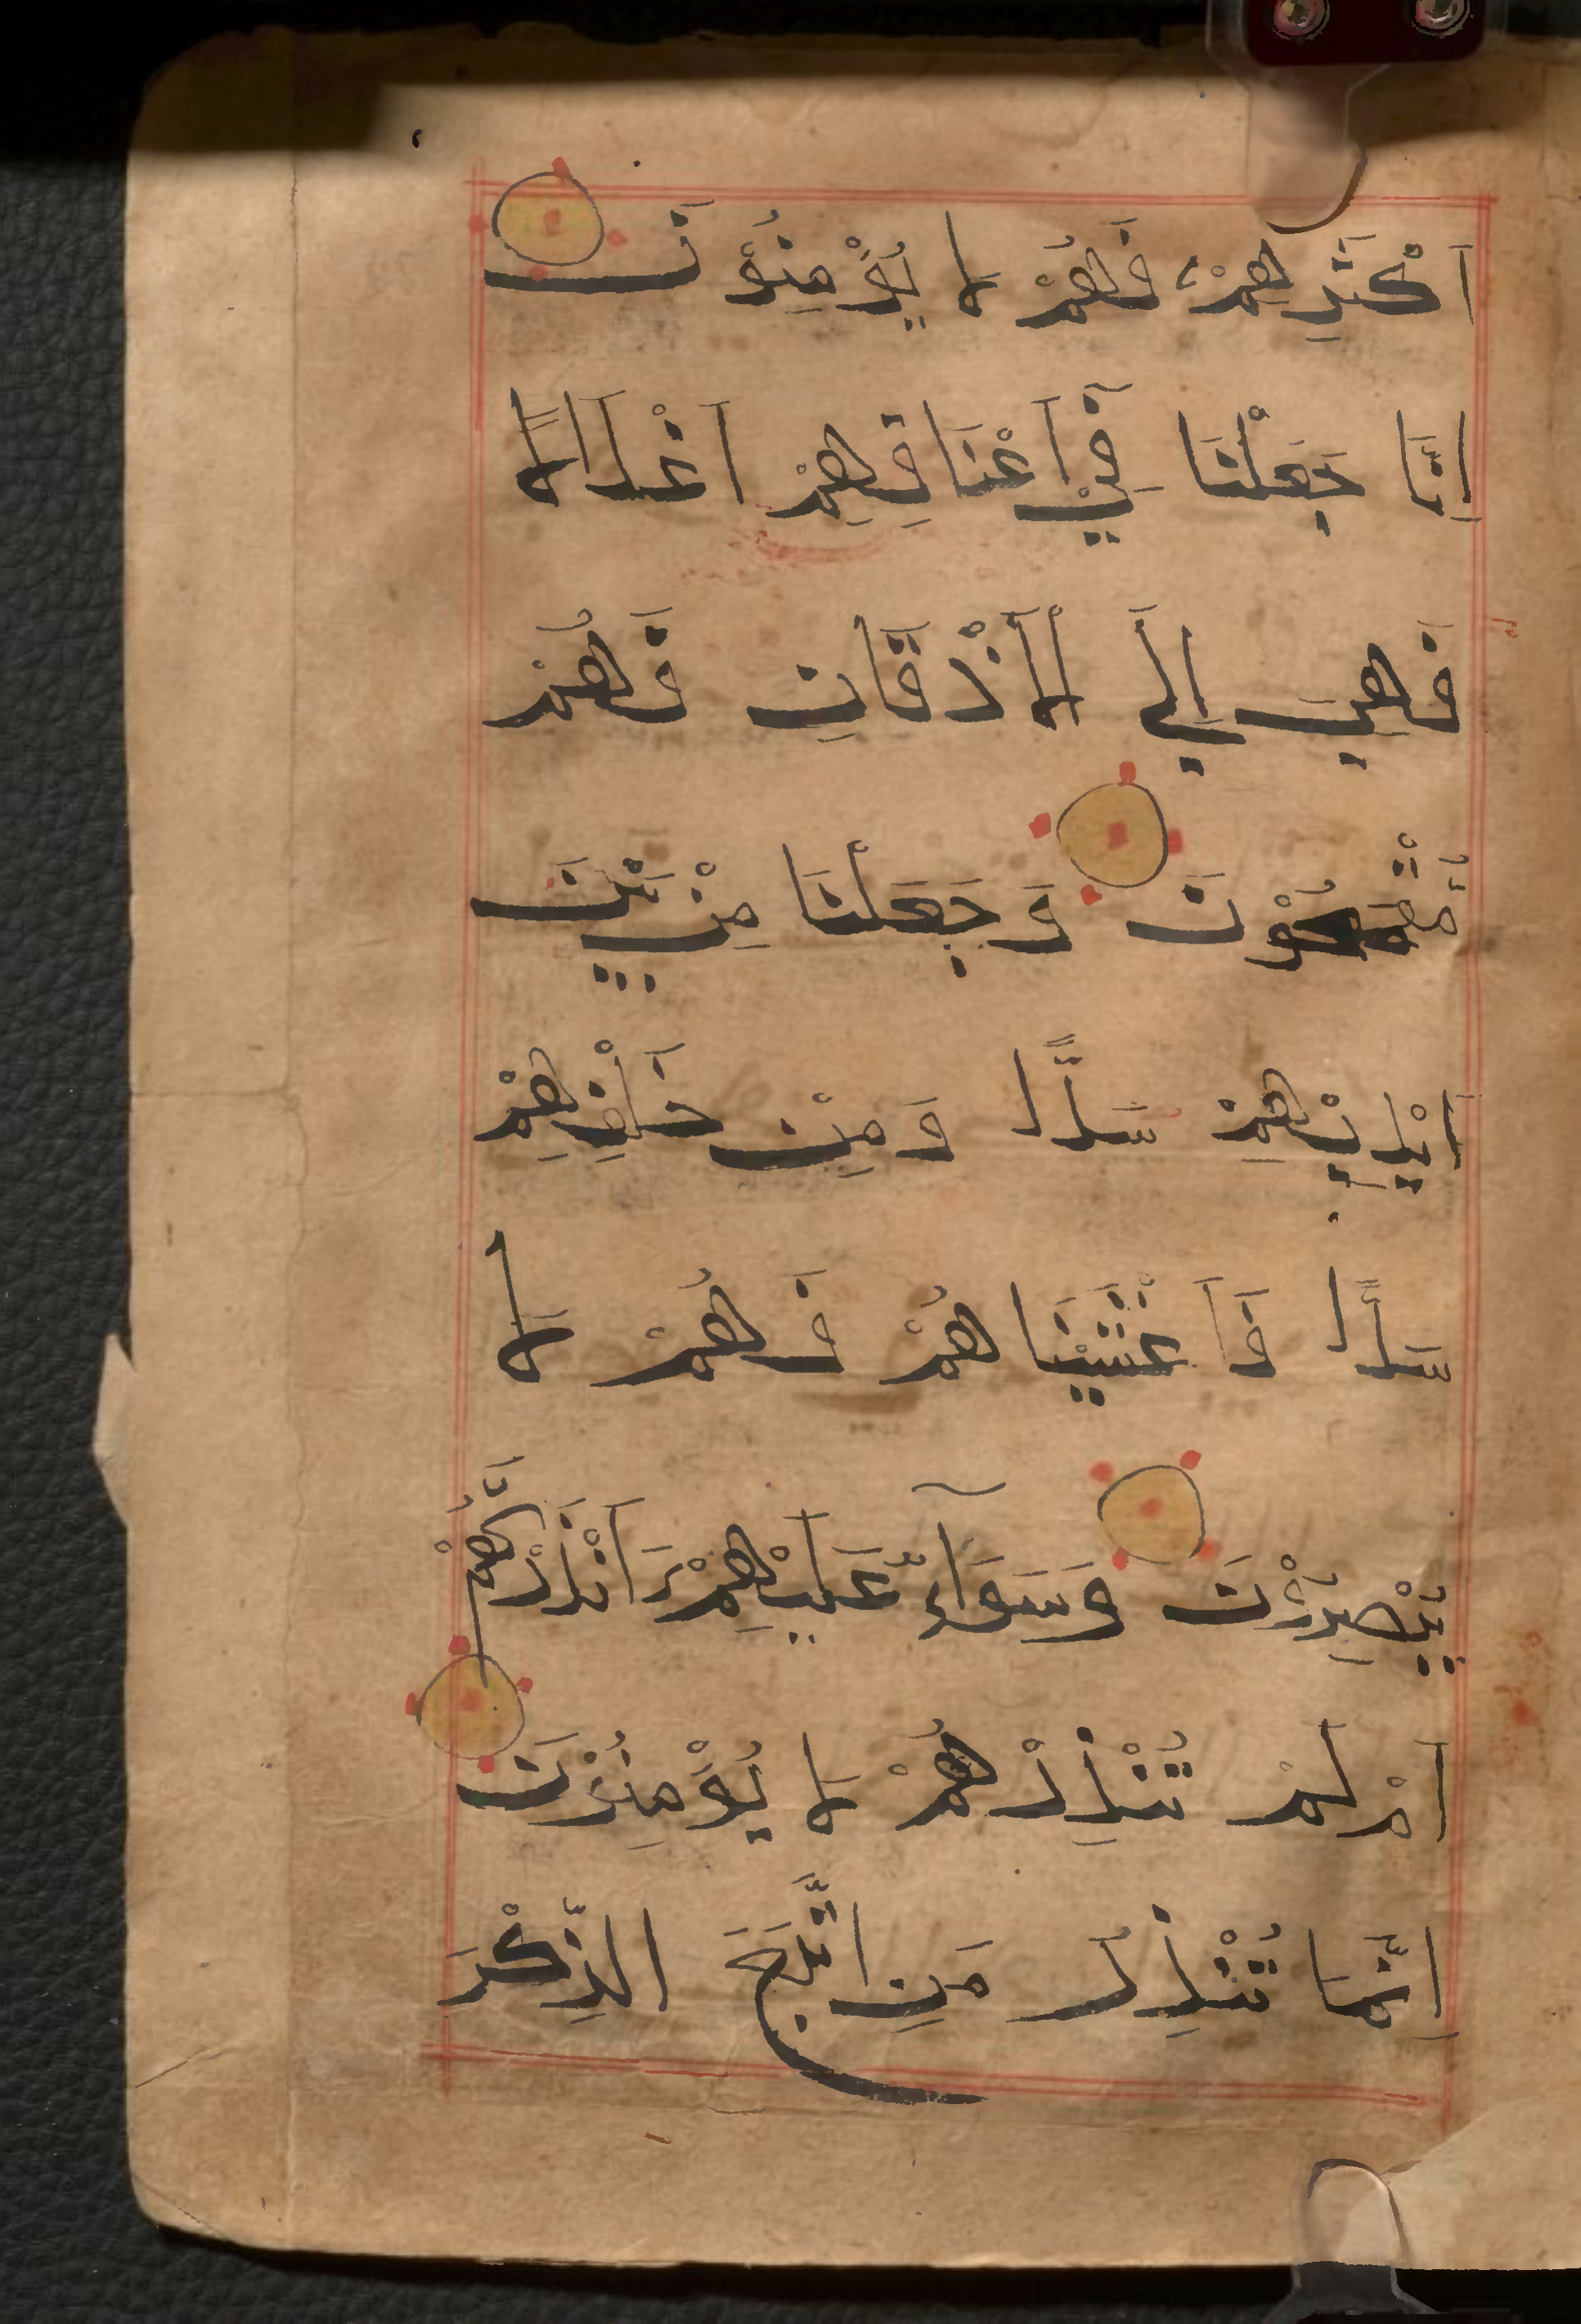 اَكْثَرِهِمْ فَهُمْ لَا يُؤْمِنُوْنَ
اِنَّا جَعَلْنَا فِيْ اَعْنَاقِهِمْ اَغْلَالًا
فَهِيَ اِلَي الْاَذْقَانِ فَهُمْ
مُّقْمَحُوْنَ وَجَعَلْنَا مِنْ بَيْنِ
اَيْدِيْهِمْ سَدًّا وَمِنْ خَلْفِهِمْ
سَدًّا فَاَغْشَيْنَاهُمْ فَهُمْ لَا
يُبْصِرُوْنَ وَسَوَآءٌ عَلَيْهِمْ ءَاَنْذَرْتَهُمْ
اَمْ لَمْ تُنْذِرْهُمْ لَا يُؤْمِنُوْنَ
اِنَّمَا تُنْذِرُ مَنِ اتَّبَعَ الذِّكْرَ